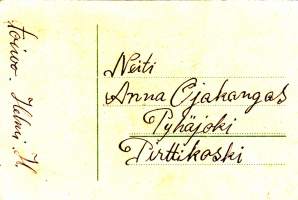 toivoo. Helmi. H.
Neiti
Anna Ojakangas
Pyhäjoki
Pirttikoski